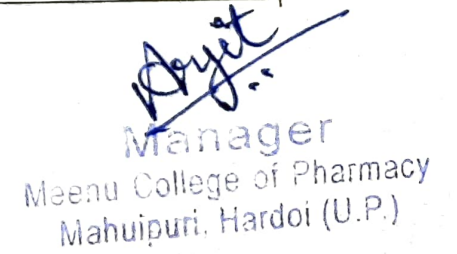 Arjit
Manager
Meenu College of Pharmacy
Mahuipuri, Hardoi (U.P.)